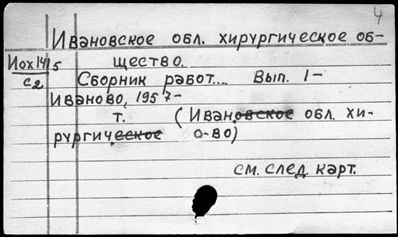 4
Ивановское обл. хирургическое об-
Иох 14/5 щество.
с2 Сборник работ... Вып. 1-
Иваново, 1957-
т. (Ивановское обл. хи-
рургическое о-во)
см. след. карт.